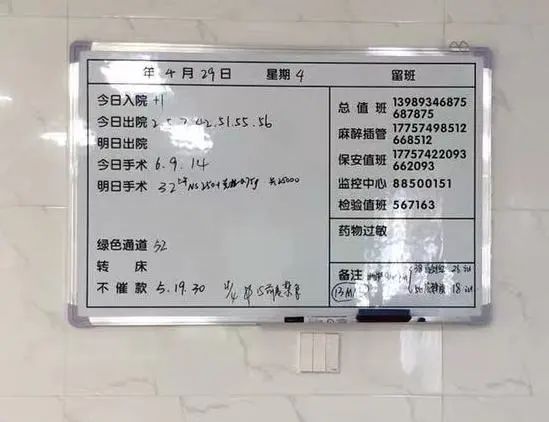 年 4 月 29 日 星期 4 留班
今日入院 +1
今日出院 2.5.7.42.51.55.56
明日出院
今日手术 6.9.14
明日手术 32
绿色通道 32
转 床
不 催 款 5.19.30
总 值 班 13989346875
687875
麻醉插管 17757498512
668512
保安值班 17757422093
662093
监控中心 88500151
检验值班 567163
药物过敏
备注